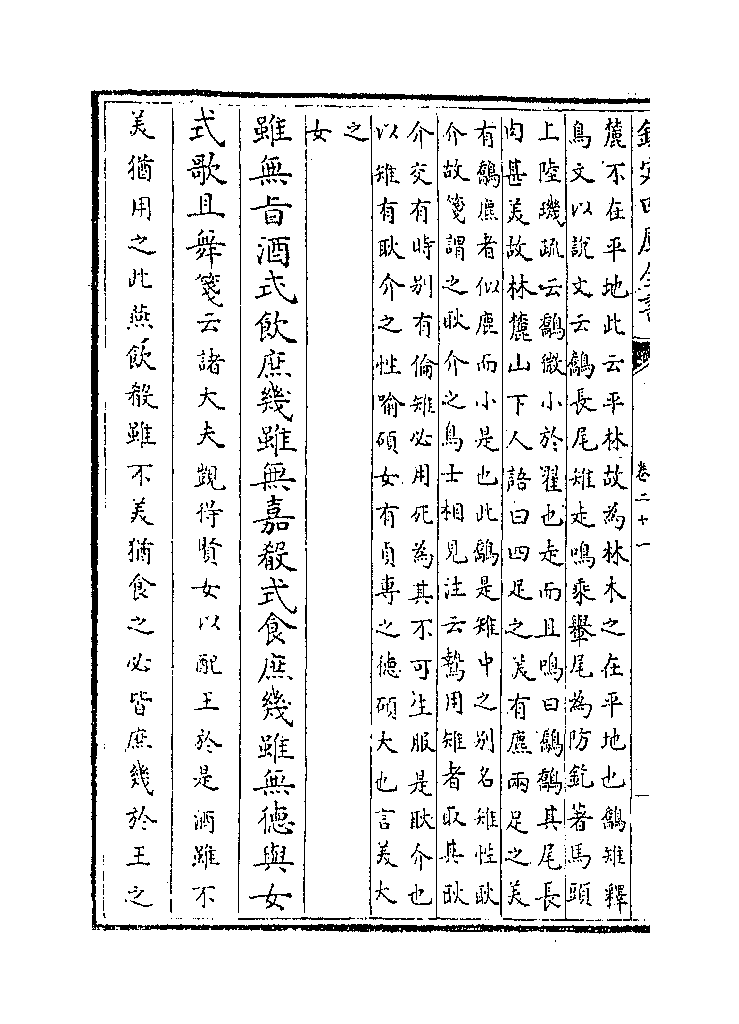 欽定四庫全書
卷二十一
麓不在平地此云平林故為林木之在平地也鷮雉釋
鳥文以說文云鷮長尾雉走鳴乘轝尾為防釳著馬頭
上陸璣疏云鷮微小於翟也走而且鳴曰鷮鷮其尾長
肉甚美故林麓山下人語曰四足之美有麃兩足之美
有鷮麃者似鹿而小是也此鷮是雉中之别名雉性耿
介故箋謂之耿介之鳥士相見注云贄用雉者取其耿
介交有時别有倫雉必用死為其不可生服是耿介也
以雉有耿介之性喻碩女有貞專之德碩大也言美大
之
女
雖無旨酒式飲庶幾雖無嘉殽式食庶幾雖無德與女
式歌且舞箋云諸大夫覯得賢女以配王於是酒雖不
美猶用之此燕飲殽雖不美猶食之必皆庶幾於王之